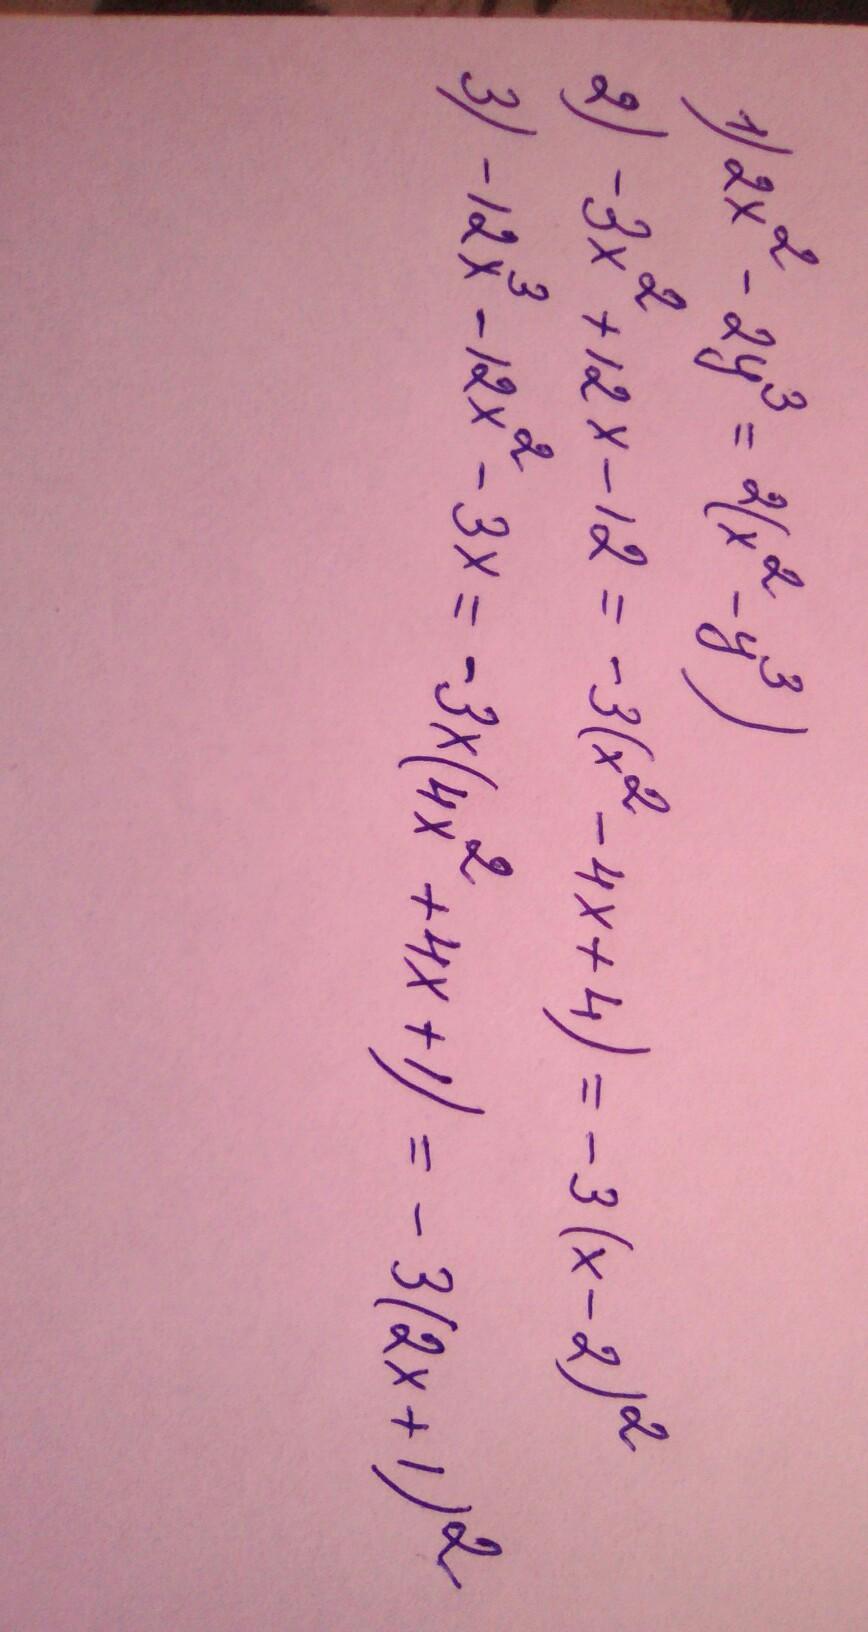 1) 2x² - 2y³ = 2(x² - y³)
2) -3x² + 12x - 12 = -3(x² - 4x + 4) = -3(x - 2)²
3) -12x³ - 12x² - 3x = -3x(4x² + 4x + 1) = -3(2x + 1)²